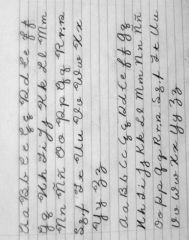 Aa Bb Cc Çç Dd Ee Ff
Gg Hh Ii Jj Kk Ll Mm
Nn Ññ Oo Pp Qq Rr
Ss Tt Uu Vv Ww Xx
Yy Zz
Aa Bb Cc Çç Dd Ee Ff Gg
Hh Ii Jj Kk Ll Mm Nn Ññ
Oo Pp Qq Rr Ss Tt Uu
Vv Ww Xx Yy Zz